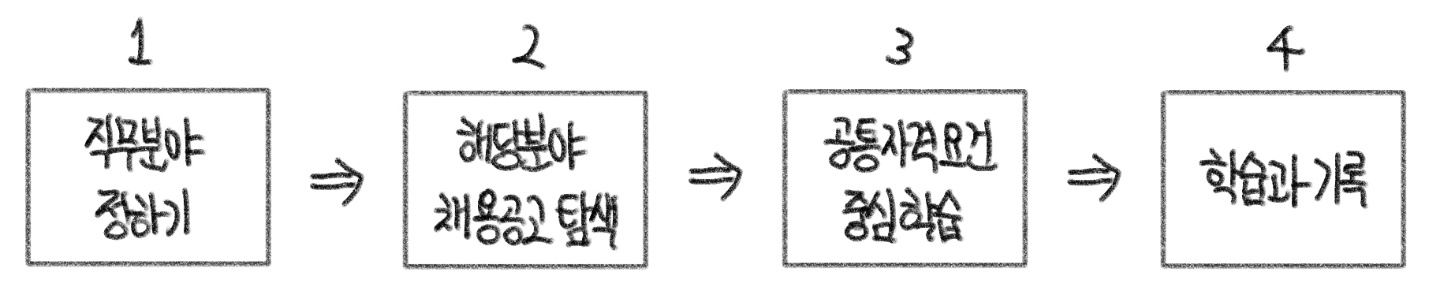 1
직무분야
정하기
⇒
2
해당분야
채용공고 탐색
⇒
3
공통자격요건
중심 학습
⇒
4
학습과 기록